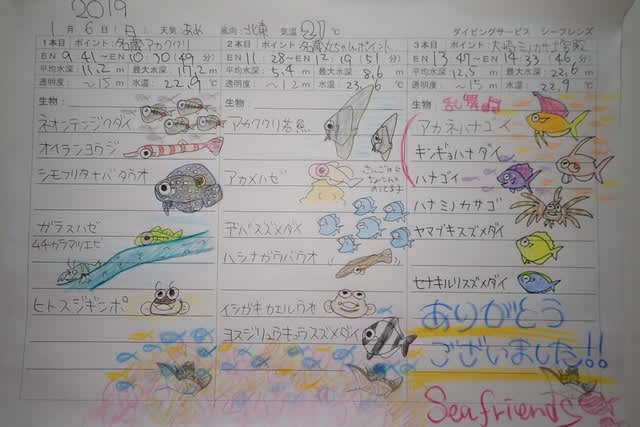 2019
1月 6日(日) 天気 あめ 風向 北東 気温 21℃
ダイビングサービス シーフレンズ
1本目 ポイント 名護アカククリ
EN 9:41～EN 10:30(49分)
平均水深 11.2m 最大水深 17.2m
透明度 ～15m 水温 22.9℃
生物
ネオンテンジクダイ
オイランヨウジ
シモフリタナバタウオ
ガラスハゼ
ムチカラマツエビ
ヒトスジギンポ
2本目 ポイント
EN 11:28～EN 12:19(51分)
平均水深 5.4m 最大水深 8.6m
透明度 ～12m 水温
生物
アカククリ若魚
アカメハゼ
さんごの上に
ちょこんと
のってます
デバスズメダイ
ハシナガウバウオ
イシガキカエルウオ
ヨスジリュウキュウスズメダイ
3本目 ポイント 大崎ミノカサゴ宮殿
EN 13:47～EN 14:33(46分)
平均水深 12.5m 最大水深 22.6m
透明度 ～15m 水温 22.9
生物 乱舞♫
アカネハナゴイ
キンギョハナダイ
ハナゴイ
ハナミノカサゴ
ヤマブキスズメダイ
セナキルリスズメダイ
ありがとう
ございました!!
Sea friends